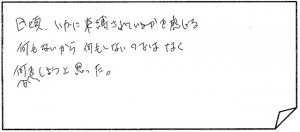 日頃、いかに束縛されているかを感じる
何もないから何もしないのではなく
何かしようと思った。